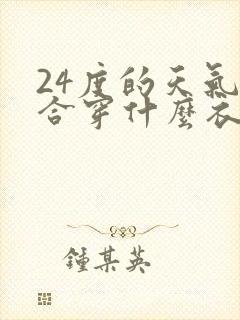 24度的天氣
合穿什麼衣
鍾某英